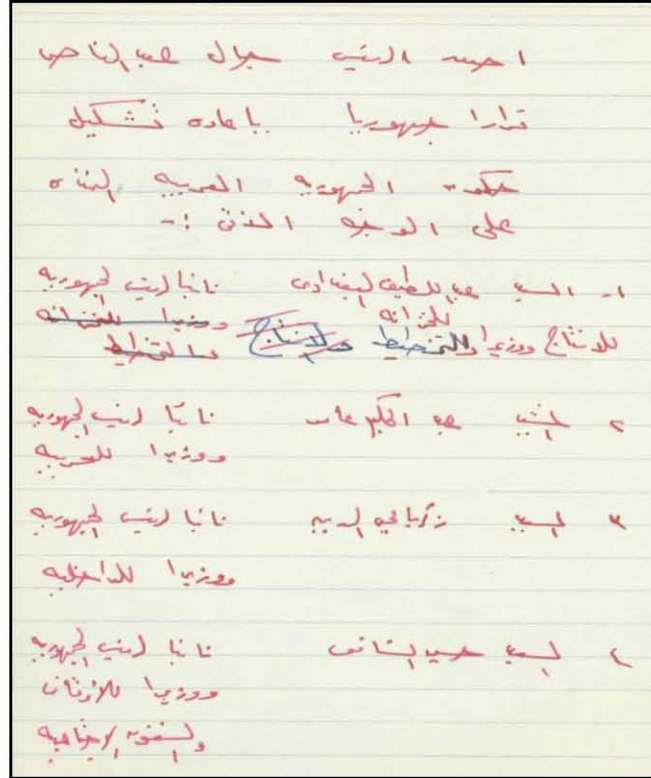 اصدر الرئيس جمال عبد الناصر
قرارا جمهوريا باعاده تشكيل
حكومه الجمهوريه العربيه المتحده
على الوجه الاتى :-
١- السيد عبد اللطيف البغدادى نائبا لرئيس الجمهوريه
للانتاج ووزيرا للخزانه وللتخطيط والانتاج ووزيرا للخزانه
والتخطيط
٢ المشير عبد الحكيم عامر نائبا لرئيس الجمهوريه
ووزيرا للحربيه
٣ السيد زكريا محي الدين نائبا لرئيس الجمهوريه
ووزيرا للداخليه
٤ السيد حسين الشافعى نائبا لرئيس الجمهوريه
ووزيرا للاوقاف
والشئون الاجتماعيه